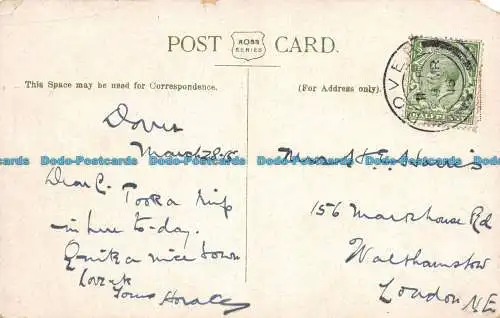 POST CARD.
ROSS
SERIES
This Space may be used for Correspondence.
(For Address only.)
DOVER
HALFPENNY
Dover
March 28
Dear C. Took a trip
in here to-day.
Quite a nice town
Love
Yours Horace
Harris
156 Markhouse Rd
Walthamstow
London N.E.
Dodo-Postcards Dodo-Postcards Dodo-Postcards Dodo-Postcards Dodo-Postcards